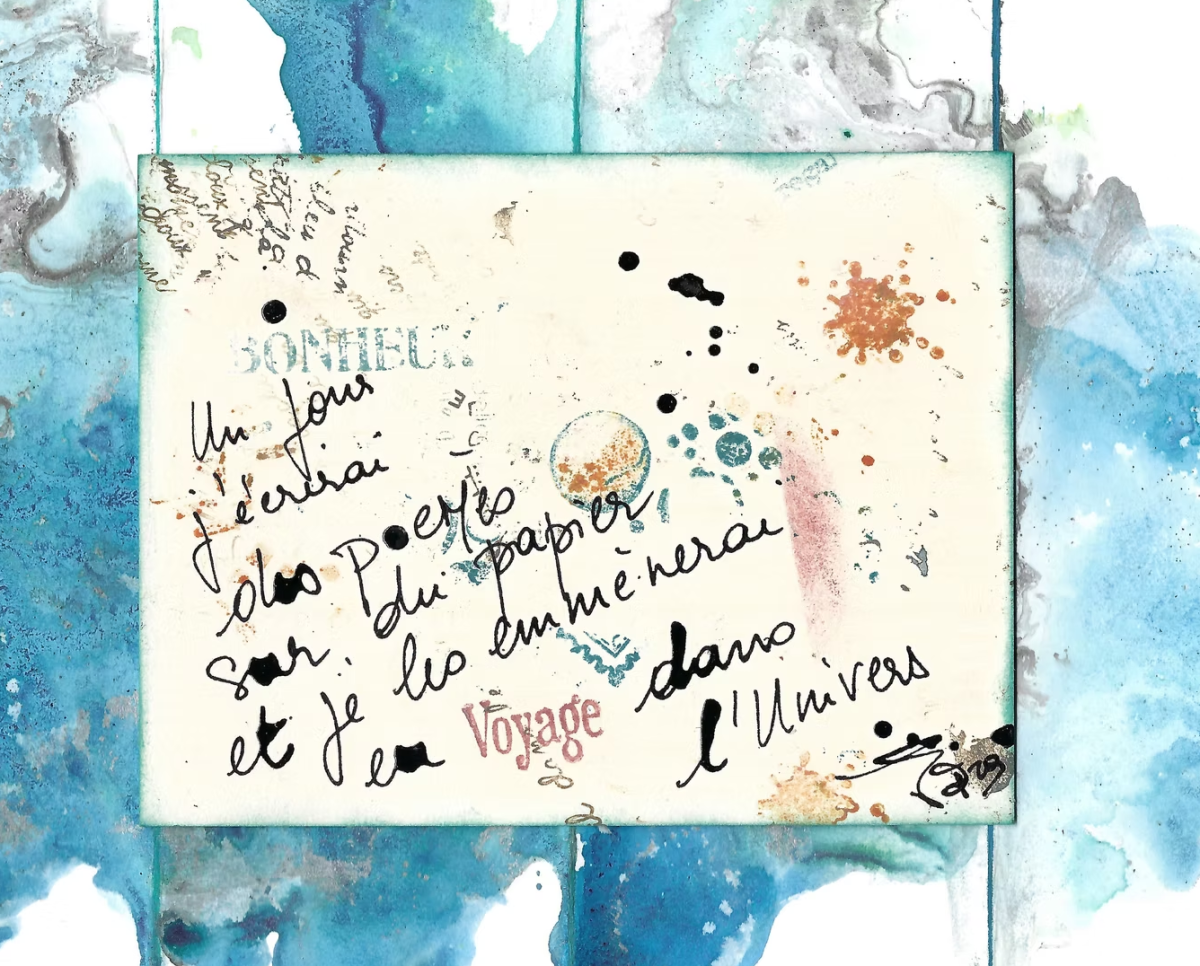 BONHEUR
Un jour
j'écrirai
des Poemes
sur du papier
et je les emmènerai
en Voyage dans
l'Univers